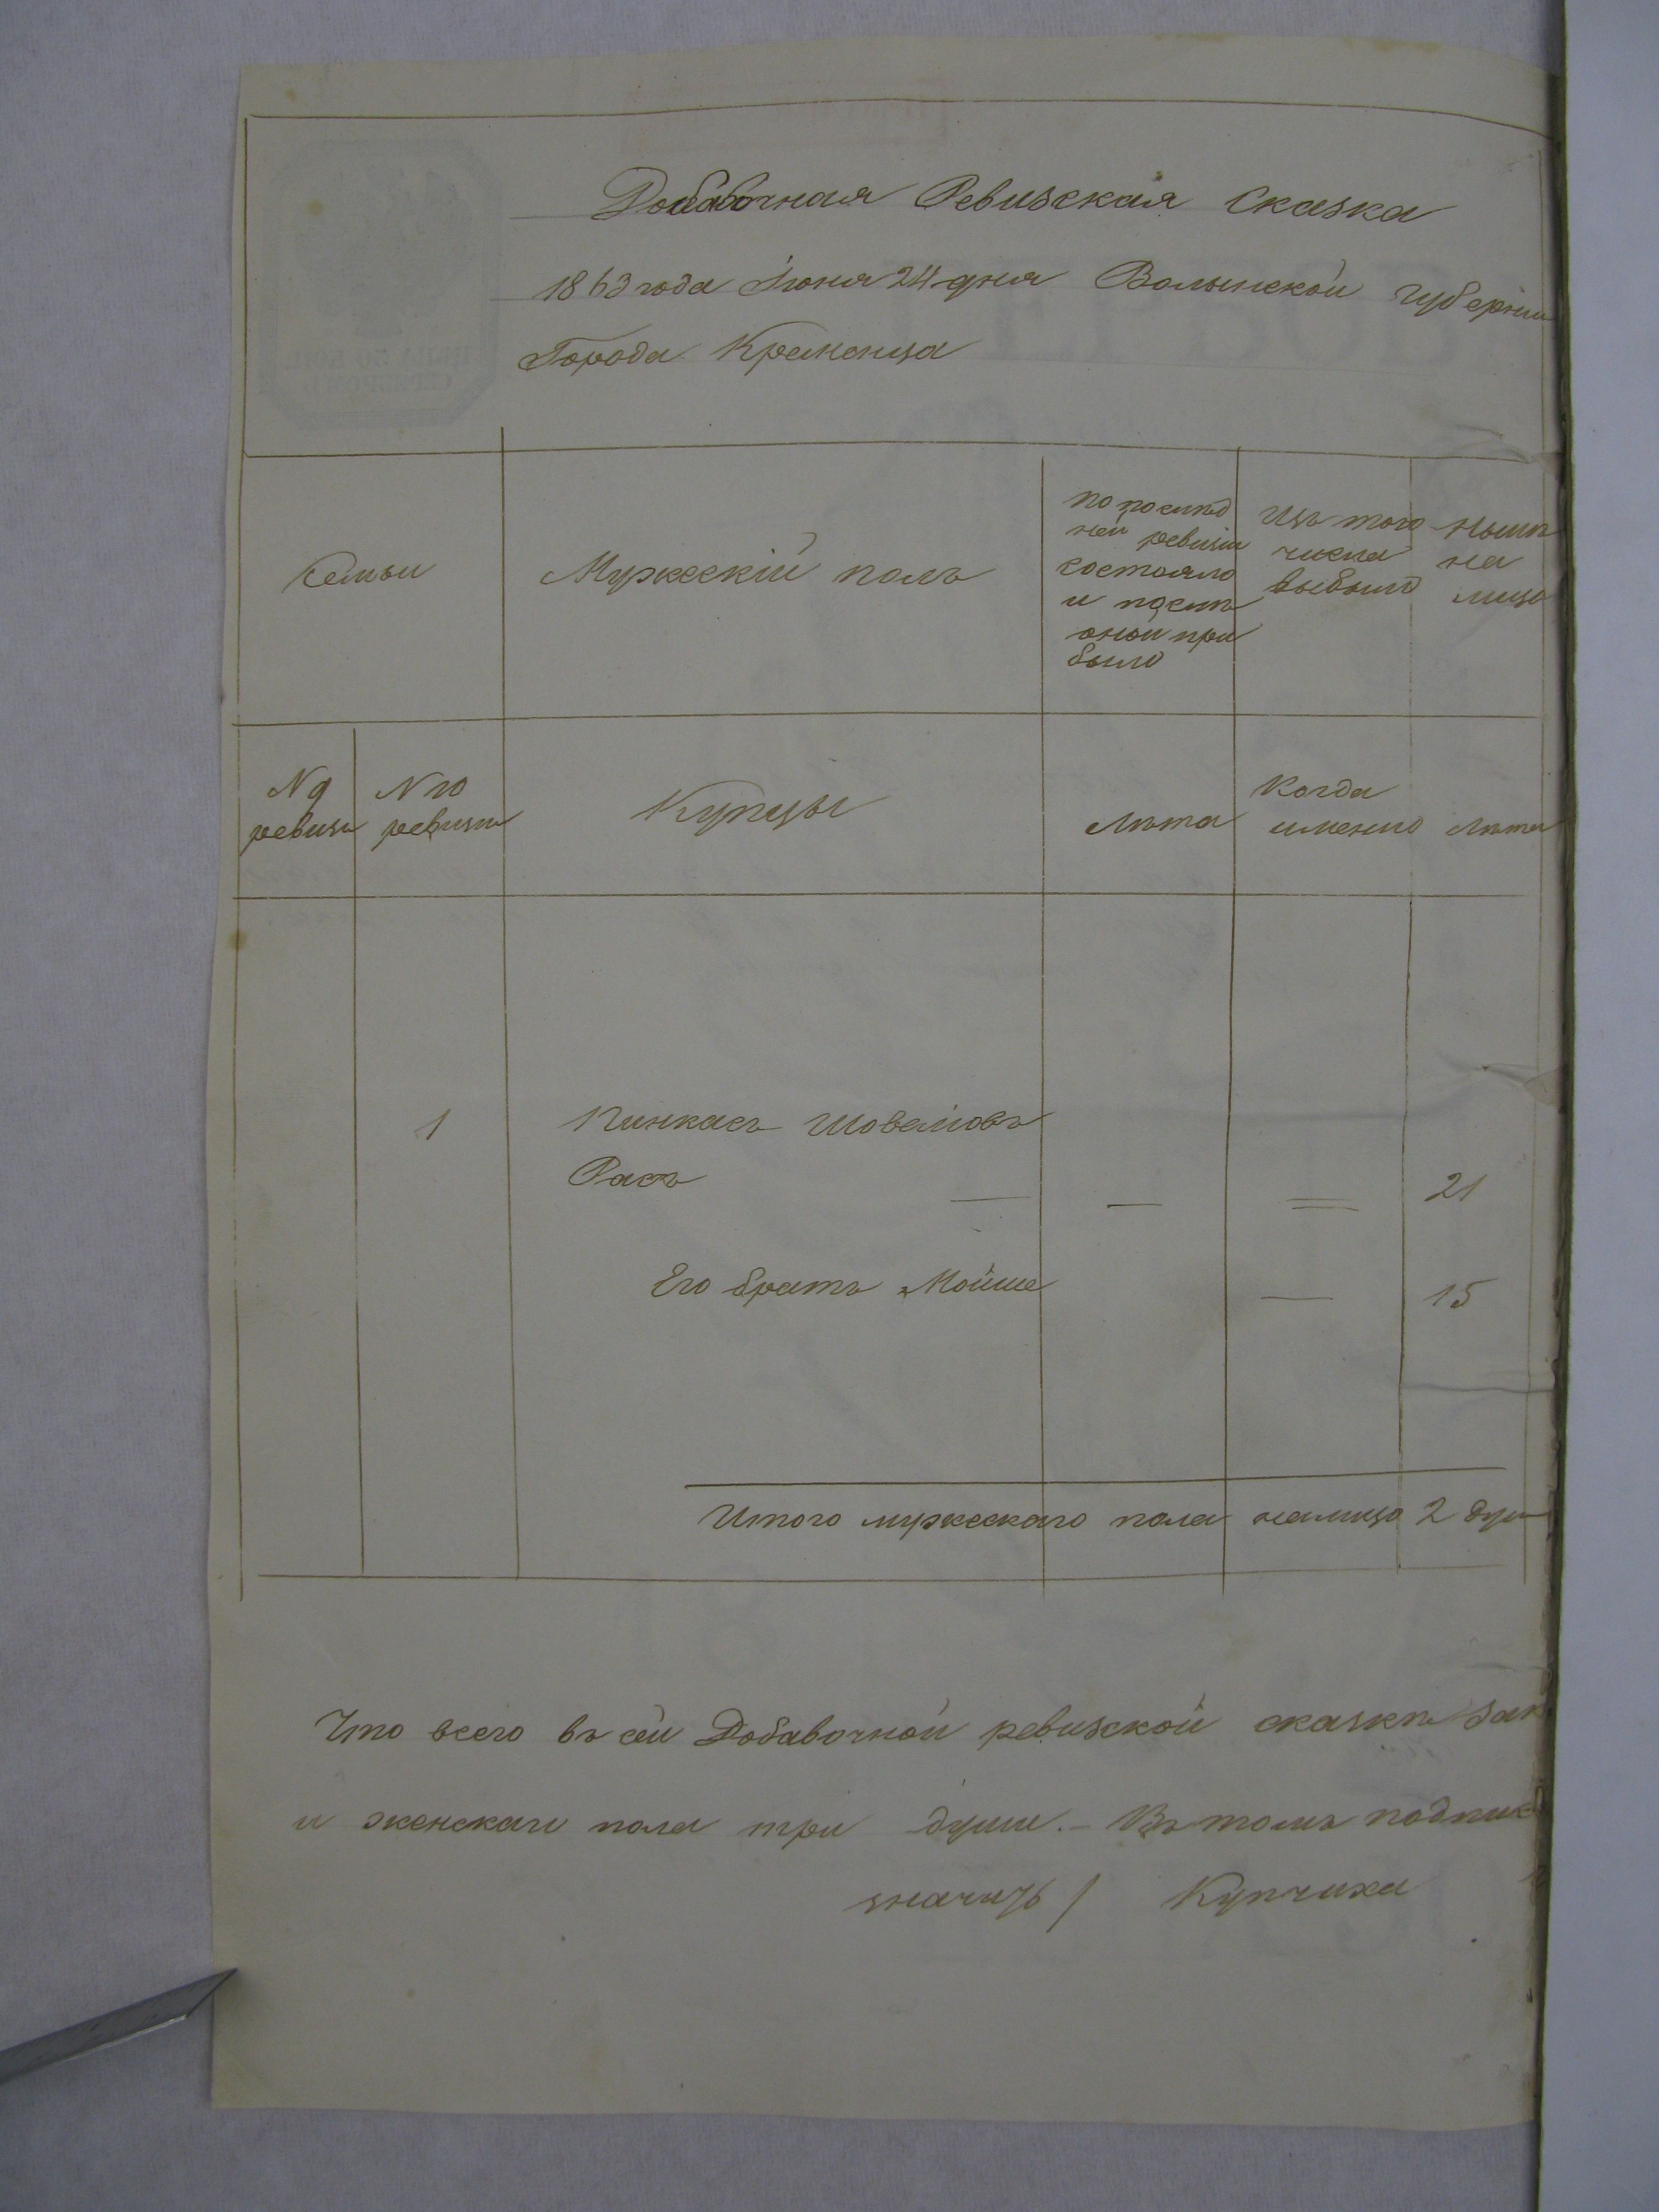 Добавочная Ревизская Сказка
1863 года Іюня 24 дня Волынской губерніи
Города Кременца
Семьи
Мужескій полъ
по послѣд
ней ревизіи
состояло
и послѣ
оной при
было
Изъ того
числа
выбыло
Нынѣ
на
лицо
N 9
ревизіи
N 10
ревизіи
Купцы
Лѣта
Когда
именно
Лѣта
1
Пинкасъ Шовеліовъ
Расъ — — = 21
Его братъ Мойше — 15
Итого мужескаго пола налицо 2 души
Что всего въ сей Добавочной ревизской сказкѣ
и женскаго пола три души. – Въ томъ
значитъ / Купчиха
ЦѢНА 30 КОП.
СЕРЕБРОМЪ